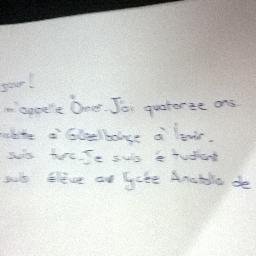 jour!
m'appelle Ömer. J'ai quatorze ans
habite à Güzelbahçe à İzmir.
suis turc. Je suis étudiant
suis élève au lycée Anatolia de